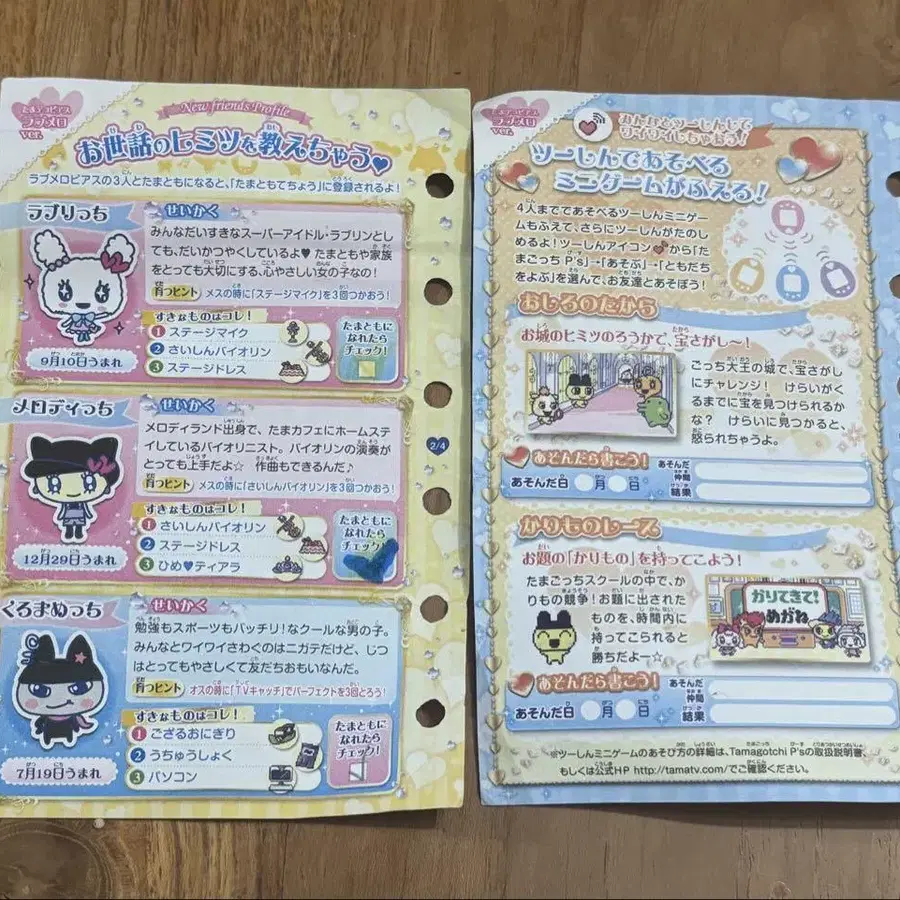 たまデコピアス
ラブメロ
ver.
New friends Profile
お世話のヒミツを教えちゃう♥
ラブメロピアスの3人とたまともになると、「たまともてちょう」に登録されるよ!
ラブリっち
9月10日うまれ
せいかく
みんなだいすきなスーパーアイドル・ラブリンとし
ても、だいかつやくしているよ♥ たまともや家族
をとっても大切にする、心やさしい女の子なの!
育つヒント メスの時に「ステージマイク」を3回つかおう!
すきなものはコレ!
1 ステージマイク
2 さいしんバイオリン
3 ステージドレス
たまともに
なれたら
チェック!
メロディっち
12月29日うまれ
せいかく
メロディランド出身で、たまカフェにホームステ
イしているバイオリニスト。バイオリンの演奏が
とっても上手だよ☆ 作曲もできるんだ♪
育つヒント メスの時に「さいしんバイオリン」を3回つかおう!
すきなものはコレ!
1 さいしんバイオリン
2 ステージドレス
3 ひめ♥ティアラ
たまともに
なれたら
チェック!
2/4
くろまめっち
7月19日うまれ
せいかく
勉強もスポーツもバッチリ!なクールな男の子。
みんなとワイワイさわぐのはニガテだけど、じつ
はとってもやさしくて友だちおもいなんだ。
育つヒント オスの時に「TVキャッチ」でパーフェクトを3回とろう!
すきなものはコレ!
1 ござるおにぎり
2 うちゅうしょく
3 パソコン
たまともに
なれたら
チェック!
たまデコピアス
ラブメロ
ver.
みんなとツーしんして
ワイワイしちゃおう!
ツーしんであそべる
ミニゲームがふえる!
4人まであそべるツーしんミニゲー
ムもふえて、さらにツーしんがたのし
めるよ!ツーしんアイコン から「た
まごっち P's」→「あそぶ」→「ともだち
をよぶ」を選んで、お友達とあそぼう!
おしろのたから
お城のヒミツのろうかで、宝さがし〜!
ごっち大王の城で、宝さがし
にチャレンジ! けらいがく
るまでに宝を見つけられるか
な? けらいに見つかると、
怒られちゃうよ。
あそんだら書こう!
あそんだ日 月 日
あそんだ
仲間
結果
かりものレース
お題の「かりもの」を持ってこよう!
たまごっちスクールの中で、か
りもの競争!お題に出された
ものを、時間内に
持ってこられると
勝ちだよー☆
かりてきて!
めがね
あそんだら書こう!
あそんだ日 月 日
あそんだ
仲間
結果
※ツーしんミニゲームのあそび方の詳細は、Tamagotchi P'sの取扱説明書、
もしくは公式HP http://tamatv.com/でご確認ください。